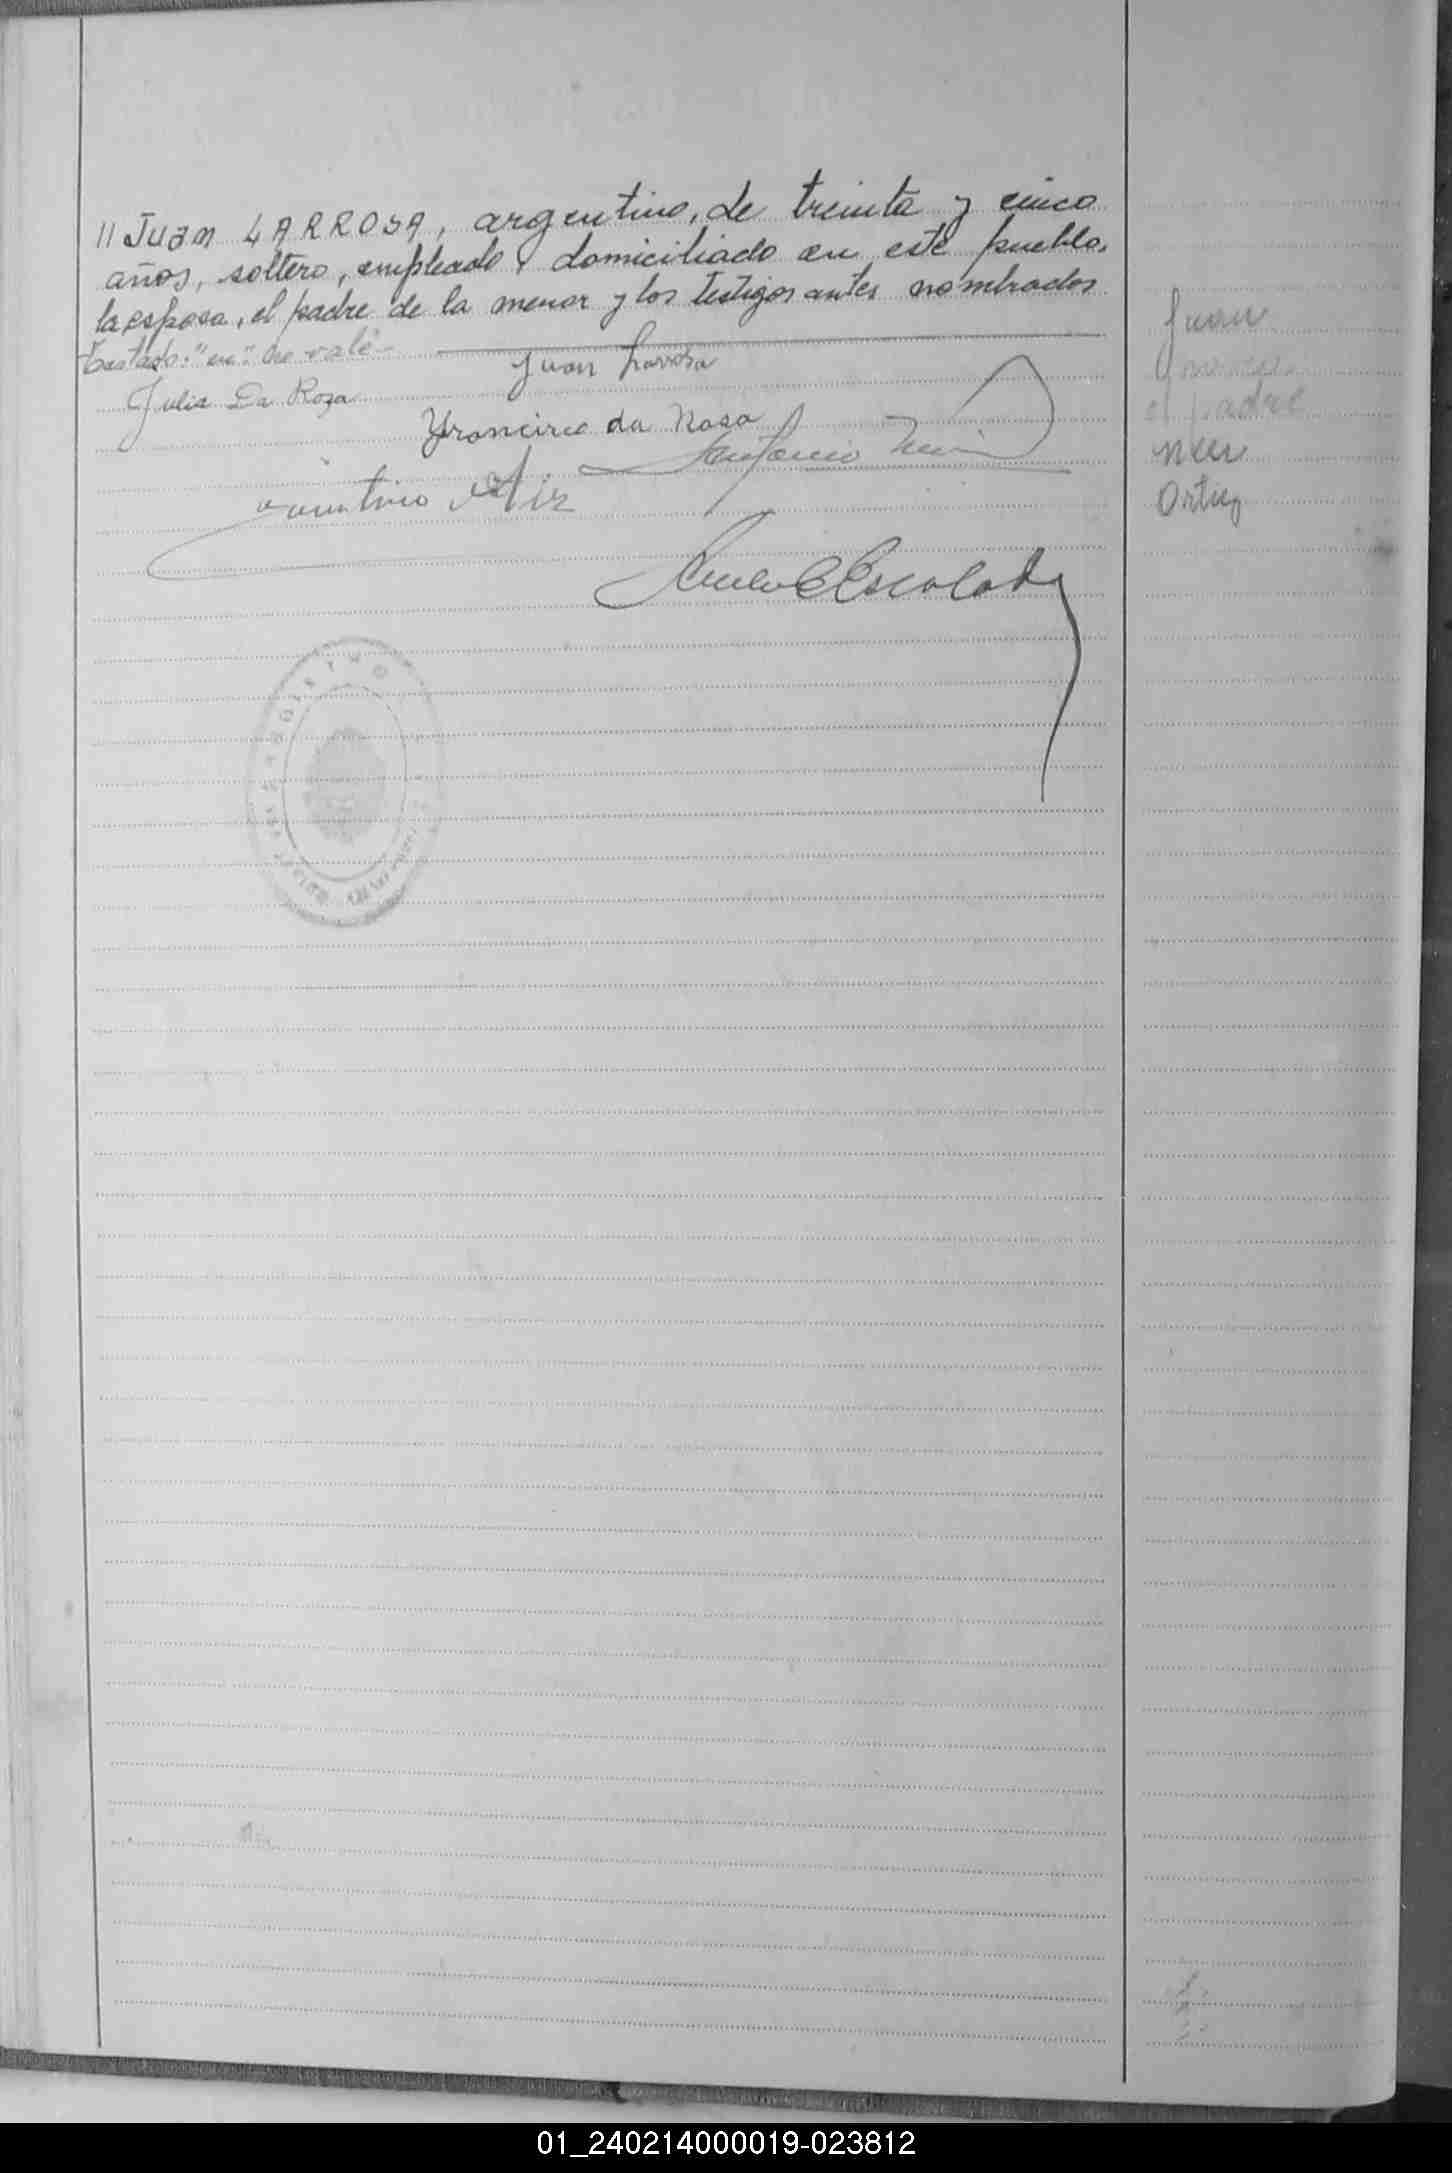 // Juan LARROSA, argentino, de treinta y cinco
años, soltero, empleado, domiciliado en este pueblo,
la esposa, el padre de la menor y los testigos antes nombrados
Testado: "en": no vale-
Juan Larrosa
Julia Da Roza
Francirco da Rosa
Antonio
Quintino
Escolad
Juan
el padre
Ortiz
01_240214000019-023812